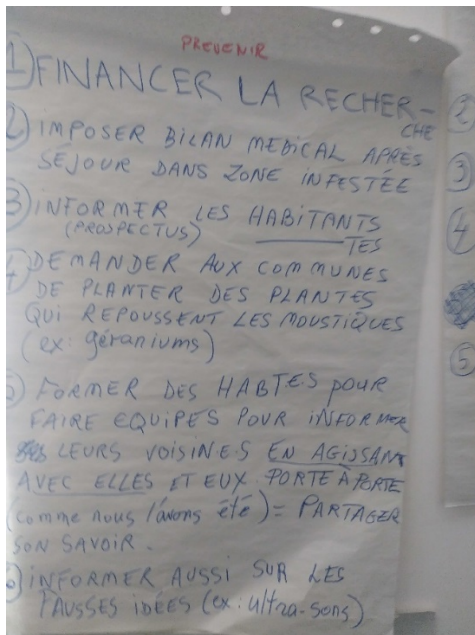 PREVENIR
1 FINANCER LA RECHER-
CHE
2 IMPOSER BILAN MEDICAL APRÈS
SÉJOUR DANS ZONE INFESTÉE
3 INFORMER LES HABITANTS
(PROSPECTUS) TES
4 DEMANDER AUX COMMUNES
DE PLANTER DES PLANTES
QUI REPOUSSENT LES MOUSTIQUES
(ex: géraniums)
5 FORMER DES HABTES pour
FAIRE EQUIPES POUR INFORMER
LEURS VOISINES EN AGISSANT
AVEC ELLES ET EUX PORTE À PORTE
(comme nous l'avons été) = PARTAGER
SON SAVOIR.
6 INFORMER AUSSI SUR LES
FAUSSES IDÉES (ex: ultra-sons)
2
3
4
5